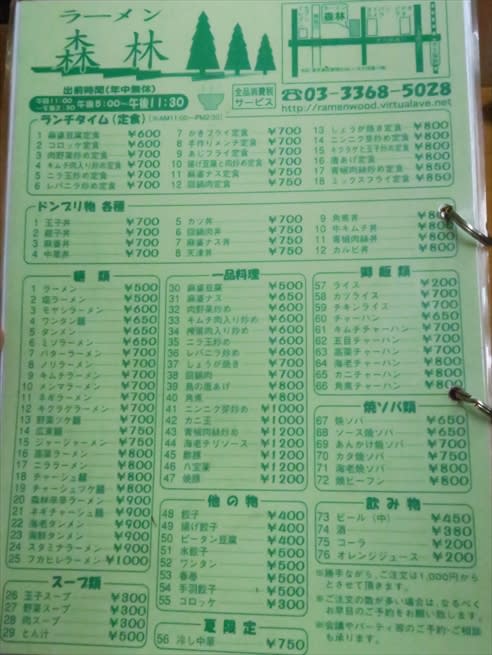 ラーメン
森林
ラーメン
森林
出前時間(年中無休)
午前11:00
午後2:30
午後5:00〜午後11:30
全品消費税
サービス
☎03-3368-5028
http://ramenwood.virtualave.net
ランチタイム(定食)
1 麻婆豆腐定食 ¥600
2 コロッケ定食 ¥600
3 肉野菜炒め定食 ¥700
4 キムチ肉入り炒め定食 ¥700
5 ニラ玉炒め定食 ¥700
6 レバニラ炒め定食 ¥700
7 かきフライ定食 ¥700
8 手作りメンチ定食 ¥700
9 あじフライ定食 ¥700
10 揚げ豆腐と肉炒め定食 ¥700
11 麻婆ナス定食 ¥750
12 回鍋肉定食 ¥750
13 しょうが焼き定食 ¥800
14 ニンニク芽炒め定食 ¥800
15 キクラゲと玉子炒め定食 ¥800
16 唐あげ定食 ¥800
17 青椒肉絲炒め定食 ¥850
18 ミックスフライ定食 ¥850
ドンブリ物 各種
1 玉子丼 ¥700
2 親子丼 ¥700
3 麻婆丼 ¥700
4 中華丼 ¥700
5 カツ丼 ¥700
6 回鍋肉丼 ¥750
7 麻婆ナス丼 ¥750
8 天津丼 ¥750
9 角煮丼 ¥800
10 牛キムチ丼 ¥800
11 青椒肉絲丼 ¥800
12 カルビ丼 ¥800
麺類
1 ラーメン ¥500
2 塩ラーメン ¥500
3 モヤシラーメン ¥600
4 ワンタン麺 ¥650
5 タンメン ¥650
6 ミソラーメン ¥650
7 バターラーメン ¥700
8 ノリラーメン ¥700
9 キムチラーメン ¥700
10 メンマラーメン ¥700
11 ネギラーメン ¥700
12 キクラゲラーメン ¥700
13 野菜ツケ麺 ¥700
14 広東麺 ¥750
15 ジャージャーメン ¥750
16 高菜ラーメン ¥800
17 ニララーメン ¥800
18 チャーシュ麺 ¥800
19 チャーシューツケ麺 ¥800
20 森林麻婆ラーメン ¥900
21 ネギチャーシュ麺 ¥900
22 海老タンメン ¥900
23 海鮮タンメン ¥900
24 スタミナラーメン ¥900
25 フカヒレラーメン ¥1000
スープ類
26 玉子スープ ¥300
27 野菜スープ ¥300
28 肉スープ ¥300
29 とん汁 ¥500
一品料理
30 麻婆豆腐 ¥600
31 麻婆ナス ¥650
32 肉野菜炒め ¥650
33 キムチ肉入り炒め ¥650
34 搾菜肉入り炒め ¥650
35 ニラ玉炒め ¥650
36 レバニラ炒め ¥650
37 しょうが焼き ¥700
38 回鍋肉 ¥700
39 鳥の唐あげ ¥800
40 角煮 ¥800
41 ニンニク芽炒め ¥1000
42 カニ玉 ¥1000
43 青椒肉絲炒め ¥1000
44 海老チリソース ¥1200
45 酢豚 ¥1200
46 八宝菜 ¥1200
47 焼豚 ¥1200
他の物
48 餃子 ¥400
49 揚げ餃子 ¥400
50 ピータン豆腐 ¥400
51 水餃子 ¥500
52 ワンタン ¥500
53 春巻 ¥500
54 手羽餃子 ¥500
55 コロッケ ¥300
夏限定
56 冷し中華 ¥750
御飯類
57 ライス ¥200
58 カツライス ¥700
59 チキンライス ¥700
60 チャーハン ¥650
61 キムチチャーハン ¥700
62 五目チャーハン ¥700
63 高菜チャーハン ¥700
64 海老チャーハン ¥800
65 カニチャーハン ¥800
66 角煮チャーハン ¥800
焼ソバ類
67 焼ソバ ¥650
68 ソース焼ソバ ¥650
69 あんかけ焼ソバ ¥700
70 カタ焼ソバ ¥750
71 海老焼ソバ ¥800
72 焼ビーフン ¥800
飲み物
73 ビール(中) ¥450
74 酒 ¥380
75 コーラ ¥200
76 オレンジジュース ¥200
※勝手ながら、ご注文は1,000円から
とさせて頂きます。
※ご注文の数が多い場合は、なるべく
お早目のご予約をお願い致します。
※会議やパーティ等のご予約・ご相談
も承ります。